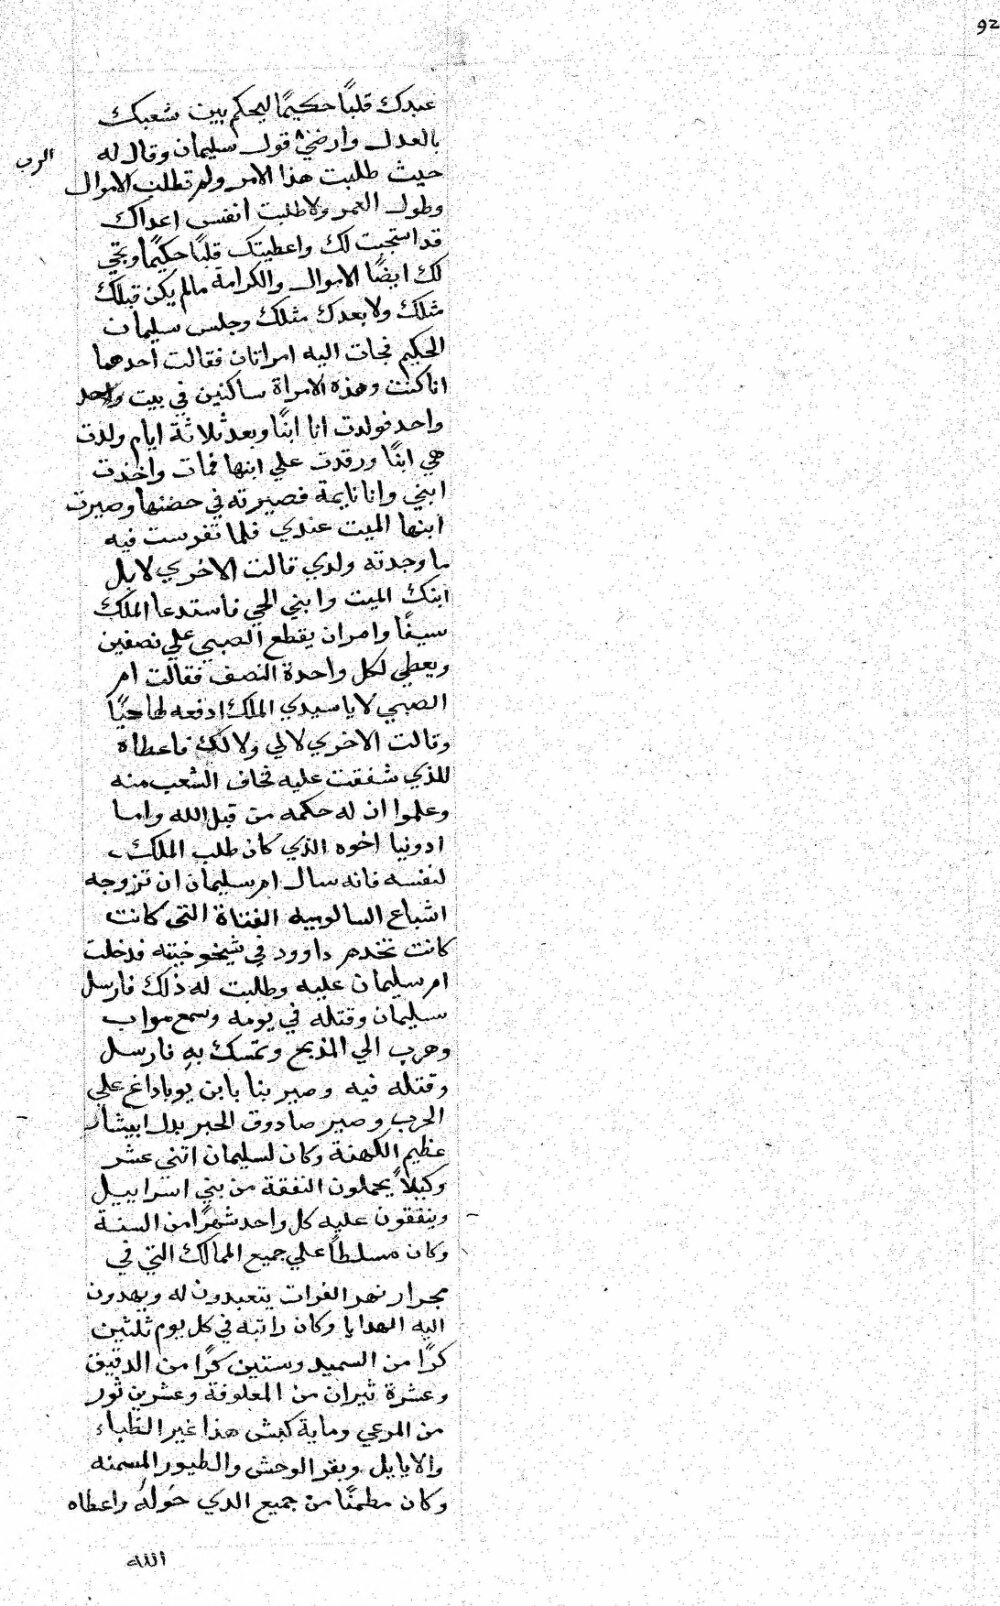 92
عبدك قلبًا حكيمًا ليحكم بين شعبك
بالعدل وارضي قول سليمان وقال له
الرب
حيث طلبت هذا الامر ولم تطلب الاموال
وطول العمر ولا طلبت انفس اعداك
قد استجبت لك واعطيتك قلبًا حكيمًا
لك ايضًا الاموال والكرامة مالم يكن قبلك
مثلك ولا بعدك مثلك وجلس سليمان
الحكيم فجات اليه امراتان فقالت احدهما
انا كنت وهذه الامراة ساكنين في بيت واحد
واحد فولدت انا ابنًا وبعد ثلاثة ايام ولدت
هي ابنًا ورقدت علي ابنها فمات واخذت
ابني وانا نايمة فصيرته في حضنها وصيرت
ابنها الميت عندي فلما تفرست فيه
ما وجدته ولدي قالت الاخري لا بل
ابنك الميت وابني الحي فاستدعا الملك
سيفًا وامر ان يقطع الصبي علي نصفين
ويعطي لكل واحدة النصف فقالت ام
الصبي لا يا سيدي الملك ادفعه لها حيًا
وقالت الاخري لا لي ولا لك فاعطاه
للذي شفقت عليه فخاف الشعب منه
وعلموا ان له حكمه من قبل الله واما
ادونيا اخوه الذي كان طلب الملك
لنفسه فانه سال ام سليمان ان تزوجه
اشباع السالوبيه الفتاة التي كانت
كانت تخدم داوود في شيخوخيته فدخلت
ام سليمان عليه وطلبت له ذلك فارسل
سليمان وقتله في يومه وسمع مواب
وهرب الي المذبح وتمسك به فارسل
وقتله فيه وصير بنا بابن يوباداغ علي
الحرب وصير صادوق الحبر بدل ابيشار
عظيم الكهنة وكان لسليمان اتني عشر
وكيلاً يحملون النفقة من بني اسراييل
وينفقون عليه كل واحد شهرًا من السنة
وكان مسلطًا علي جميع الممالك التي في
مجرار نهر الفرات يتعبدون له ويهدون
اليه الهدايا وكان راتبه في كل يوم ثلثين
كرًا من السميد وستين كرًا من الدقيق
وعشرة ثيران من المعلوفة وعشرين ثور
من المرعي وماية كبش هذا غير الظباء
والايايل وبقر الوحش والطيور المسمنه
وكان مطمنًا من جميع الدي حوله واعطاه
الله